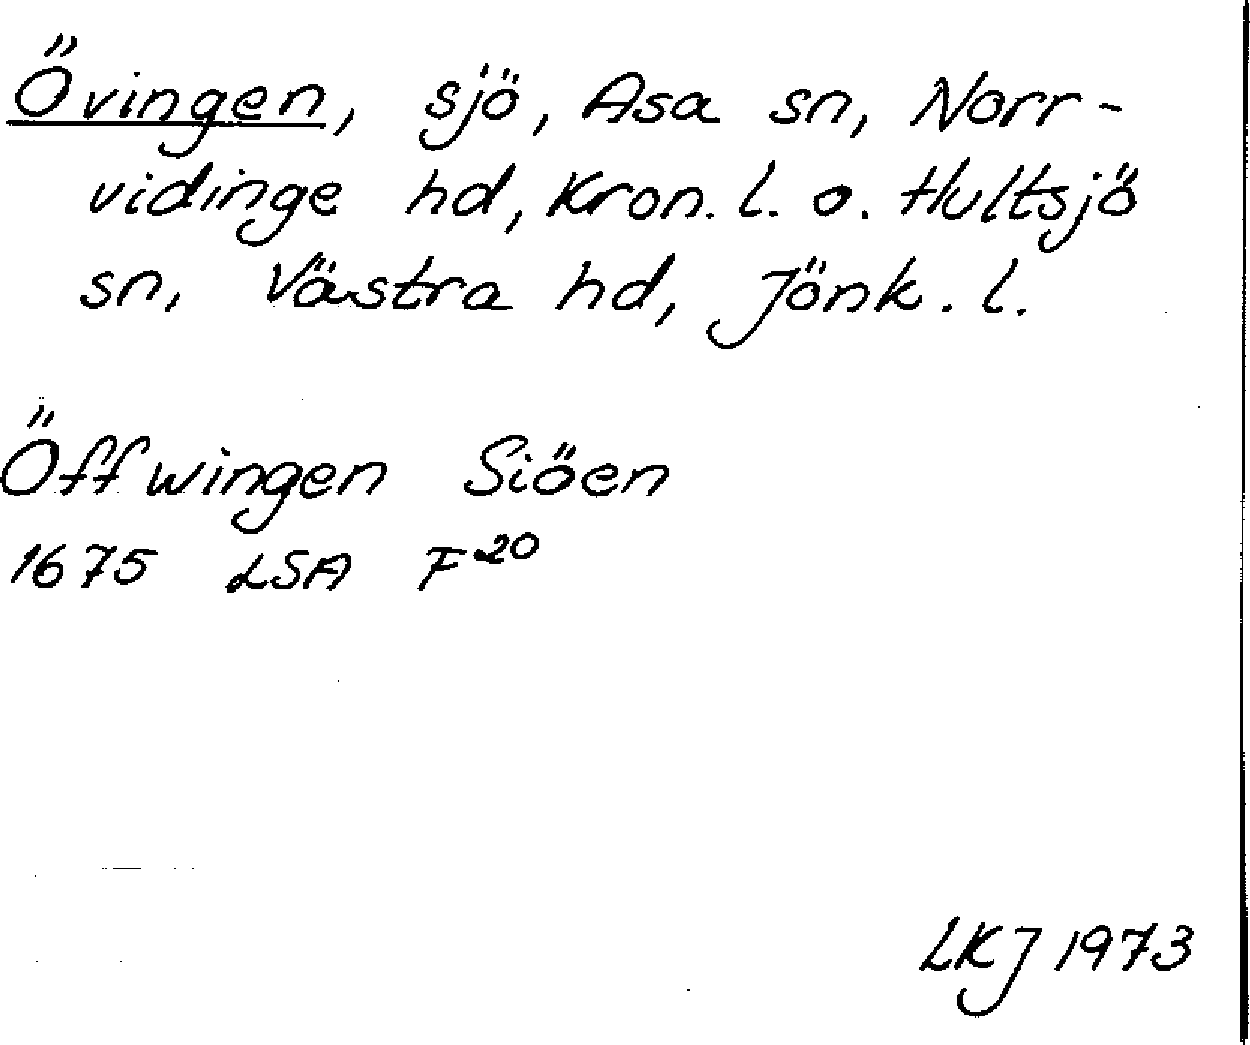 Övingen, sjö, Asa sn, Norr-
vidinge hd, Kron. l. o. Hultsjö
sn, Västra hd, Jönk. l.
Öffwingen Siöen
1675 LSA F20
LKJ 1973